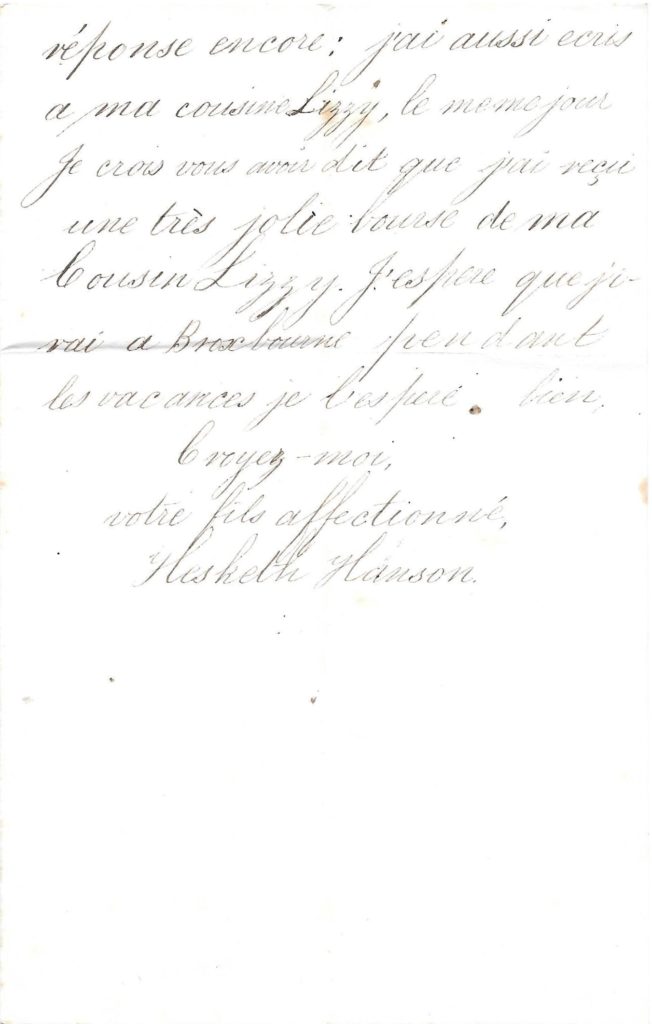 réponse encore: j'ai aussi ecris
a ma cousine Lizzy, le meme jour
Je crois vous avoir dit que j'ai reçu
une très jolie bourse de ma
Cousin Lizzy. J'espere que j'i-
rai a Broxbourne pendant
les vacances je l'esperé. bien,
Croyez-moi,
votre fils affectionné,
Hesketh Hanson.